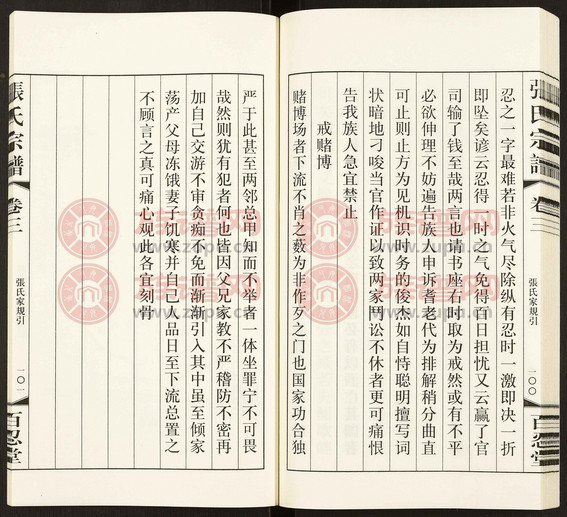 張氏宗譜
卷三
張氏家規引
一〇〇
百忍堂
忍之一字最难若非火气尽除纵有忍时一激即决一折
即坠矣谚云忍得一时之气免得百日担忧又云赢了官
司输了钱至哉两言也请书座右时取为戒然或有不平
必欲伸理不妨遍告族人申诉耆老代为排解稍分曲直
可止则止方为见机识时务的俊杰如自恃聪明擅写词
状暗地刁唆当官作证以致两家鬥讼不休者更可痛恨
告我族人急宜禁止
戒赌博
赌博场者下流不肖之薮为非作歹之门也国家功合独
严于此甚至两邻总甲知而不举者一体坐罪宁不可畏
哉然则犹有犯者何也皆因父兄家教不严稽防不密再
加自己交游不审贪痴不免而渐渐引入其中虽至倾家
荡产父母冻饿妻子饥寒并自己人品日至下流总置之
不顾言之真可痛心观此各宜刻骨
張氏宗譜
卷三
張氏家規引
一〇一
百忍堂
族普网
www.zupu.cn
族普网
www.zupu.cn